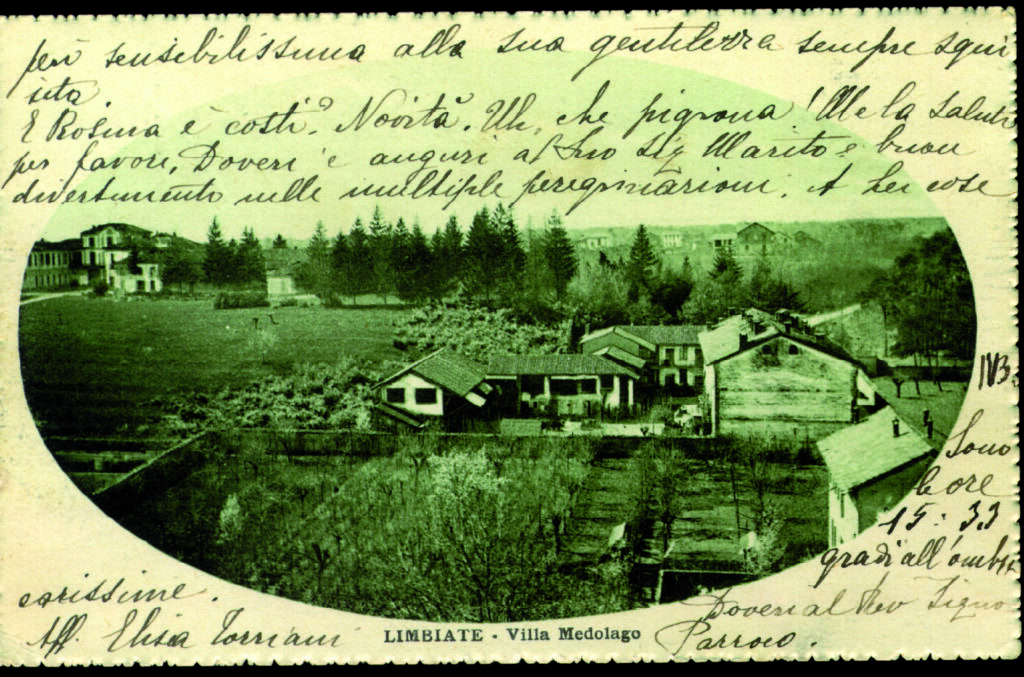 però sensibilissima alla sua gentilezza sempre squi
sita.
E Rosina è costì? Novità. Uh, che pigrona! Me la saluti
per favore, Doveri e auguri al Suo Sig Marito e buon
divertimento nelle multiple peregrinazioni. A Lei cose
Sono
le ore
15: 33
gradi all'ombra
carissime.
Aff. Elisa Torriani
LIMBIATE - Villa Medolago
Doveri al Rev Signo
Parroco.